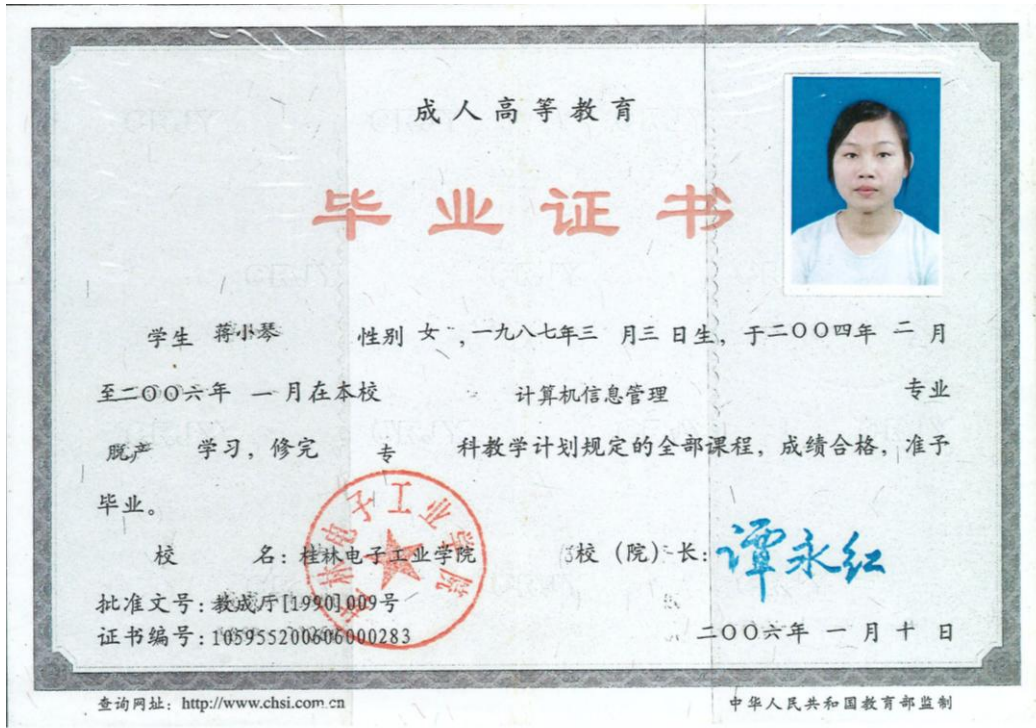 成人高等教育
毕业证书
学生 蒋小琴 性别 女 ,一九八七年三 月三 日生，于二〇〇四年 二 月
至二〇〇六年 一 月在本校 计算机信息管理 专业
脱产 学习，修完 专 科教学计划规定的全部课程，成绩合格，准予
毕业。
校 名：桂林电子工业学院 校（院）长：谭永红
桂林电子工业学院
批准文号：教成厅[1990]009号
证书编号：105955200606000283
二〇〇六年 一 月 十 日
查询网址：http://www.chsi.com.cn 中华人民共和国教育部监制